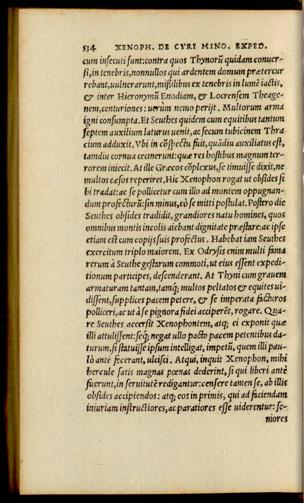 534 XENOPH. DE CYRI MINO. EXPED.
cum insecuti sunt: contra quos Thynorū quidam conuer-
si, in tenebris, nonnullos qui ardentem domun prætercur
rebant, uulnerarunt, missilibus ex tenebris in lumē iactis,
& inter Hieronymū Enodiam, & Locrensem Theage-
nem, centuriones: uerùm nemo perijt. Multorum arma
igni consumpta. Et Seuthes quidem cum equitibus tantum
septem auxilium laturus uenit, ac secum tubicinem Thra
cium adduxit. Vbi in cōspectu fuit, quādiu auxiliatus est,
tamdiu cornua cecinerunt: quæ res hostibus magnum ter-
rorem iniecit. At ille Græcos cōplexus, se timuisse dixit, ne
multos cæsos reperiret. Hîc Xenophon rogat ut obsides si
bi tradat: ac se pollicetur cum illo ad montem oppugnan-
dum profecturū: sin minus, eò se mitti postulat. Postero die
Seuthes obsides tradidit, grandiores natu homines, quos
omnibus montis incolis aiebant dignitate præstare: ac ipse
etiam est cum copijs suis profectus. Habebat iam Seuthes
exercitum triplo maiorem, Ex Odrysis enim multi fama
rerum à Seuthe gestarum commoti, ut eius essent expedi-
tionum participes, descenderant. At Thyni cum grauem
armaturam tantam, tamq; multos peltatos & equites ui-
dissent, supplices pacem petere, & se imperata facturos
polliceri, ac ut à se pignora fidei acciperēt, rogare. Qua-
re Seuthes accersit Xenophontem, atq; ei exponit quæ
illi attulissent: seq; negat ullo pacto pacem petentibus da-
turum, si statuisse ipsum intelligat, impetū, quem illi pau-
lò antè fecerant, ulcisci. Atqui, inquit Xenophon, mihi
hercule satis magnas pœnas dederint, si qui liberi antè
fuerunt, in seruitutē redigantur: censere tamen se, ab illis
obsides accipiendos: atq; eos in primis, qui ad faciendam
iniuriam instructiores, ac paratiores esse uiderentur: se-
niores